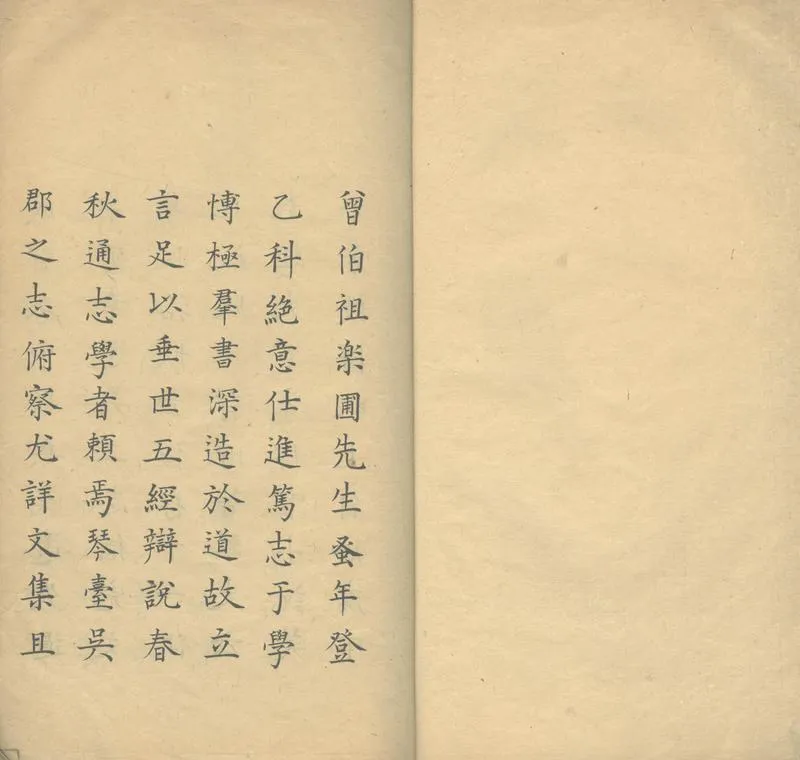 曾伯祖楽圃先生蚤年登
乙科絶意仕進篤志于學
愽極羣書深造於道故立
言足以垂世五經辯說春
秋通志學者頼焉琴臺吳
郡之志俯察尤詳文集且